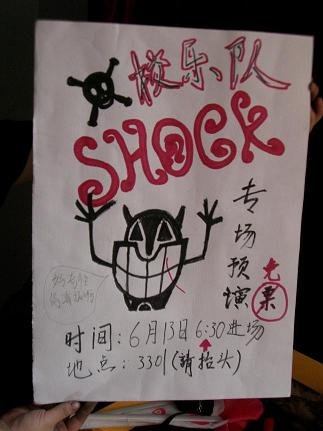 校乐队
SHOCK
专场预演
免票
时间:6月13日 6:30进场
地点:3301(請抬头)